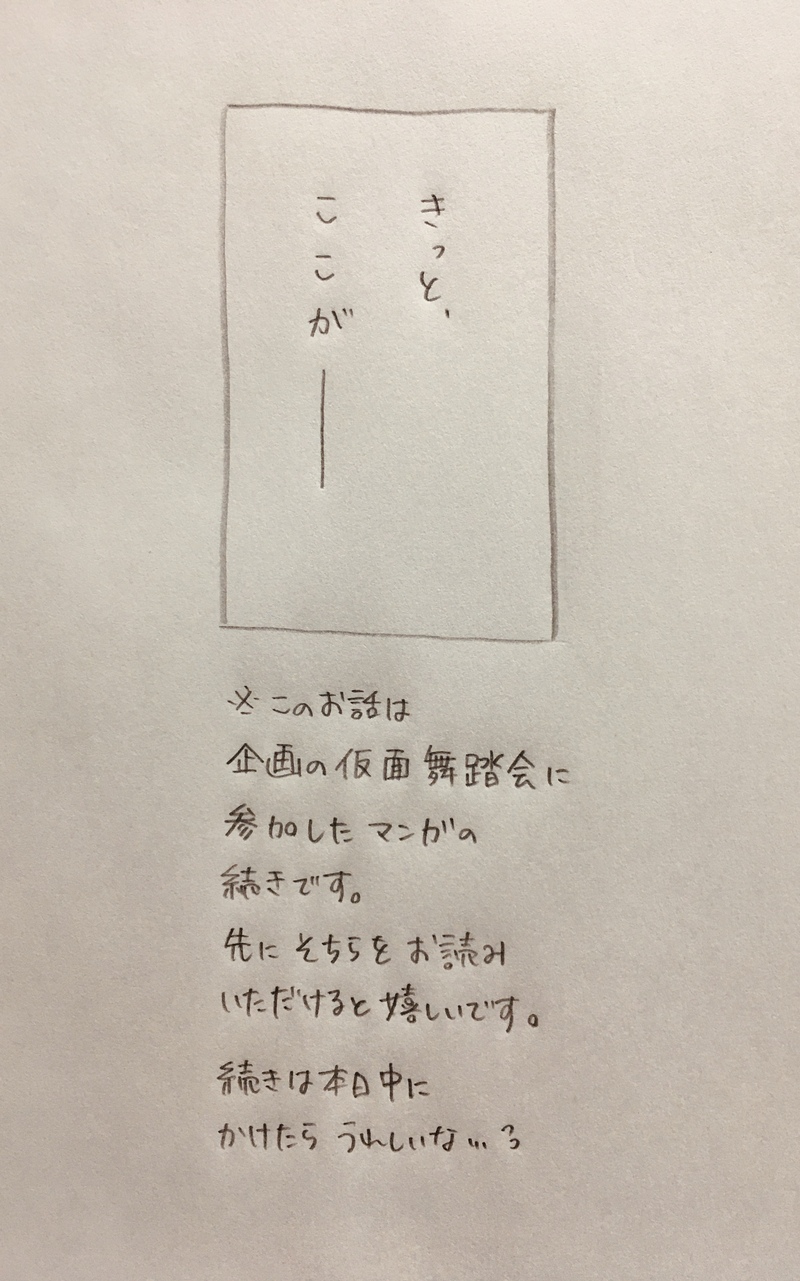 きっと、
ここが――
※このお話は
企画の仮面舞踏会に
参加したマンガの
続きです。
先にそちらをお読み
いただけると嬉しいです。
続きは本日中に
かけたらうれしいな…